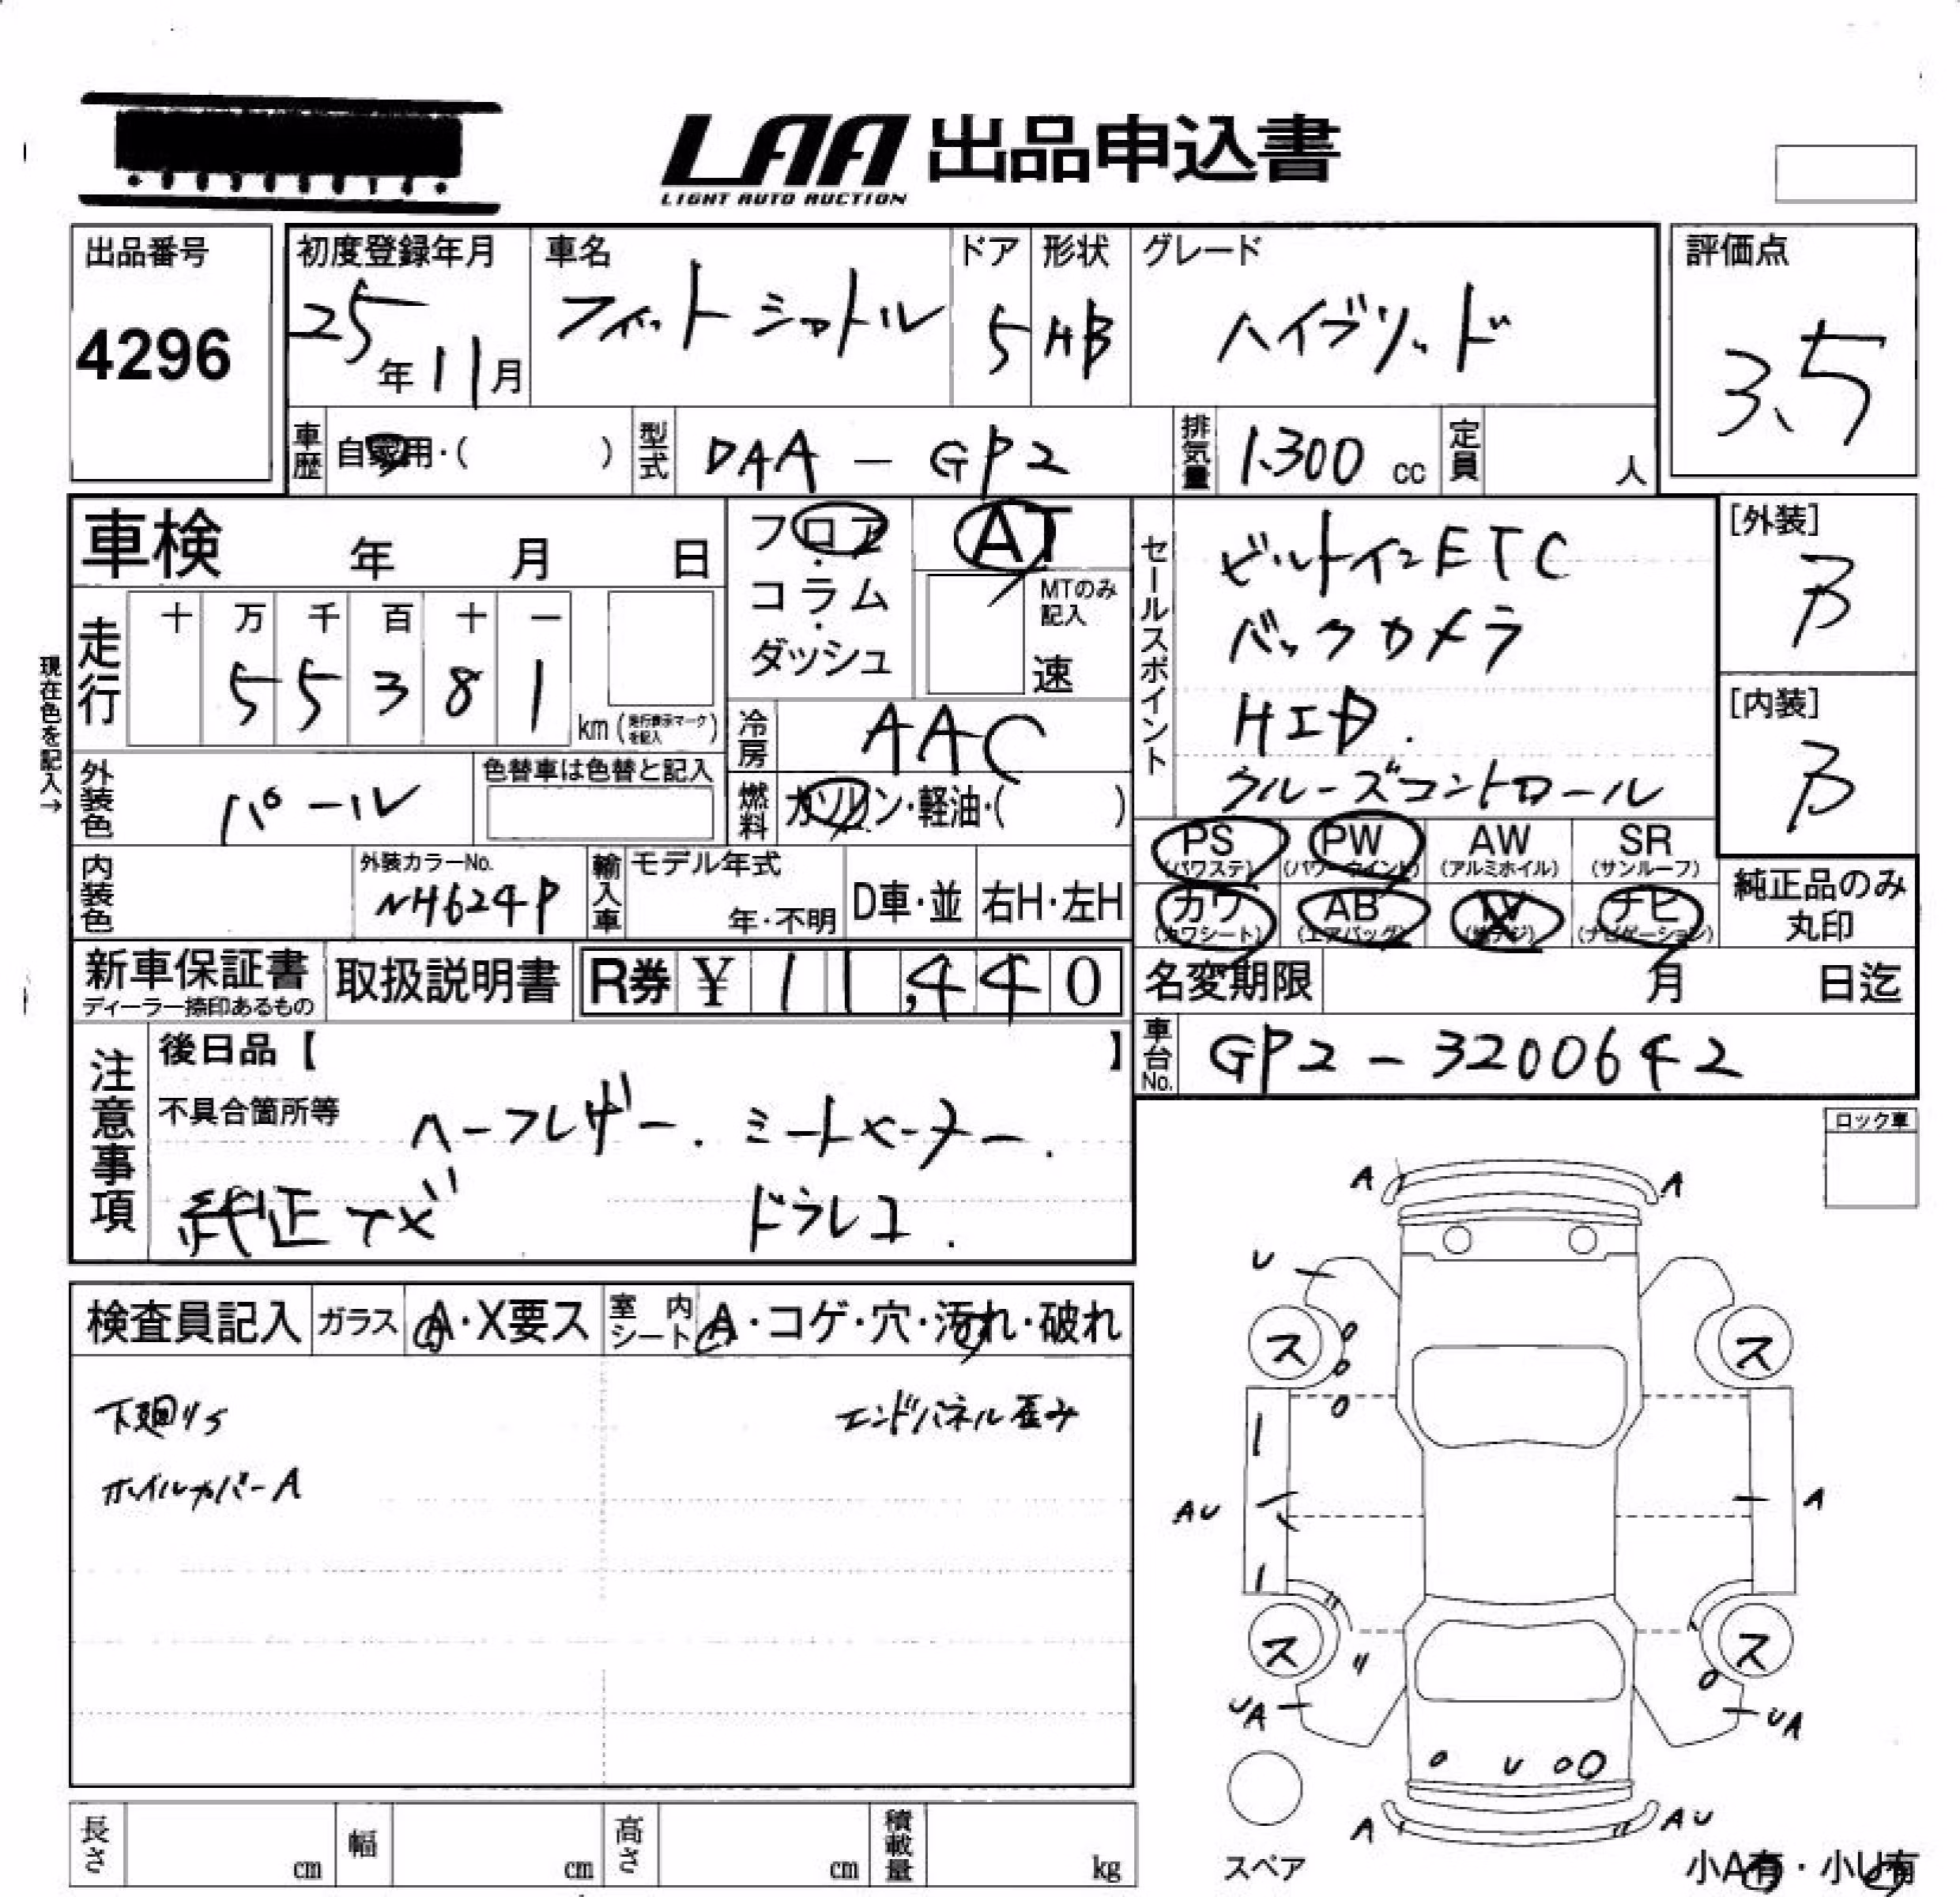 LAA 出品申込書
LIGHT AUTO AUCTION
出品番号
4296
初度登録年月
25年11月
車名
フィットシャトル
ドア
5
形状
HB
グレード
ハイブリッド
評価点
3.5
車歴
自家用・( )
型式
DAA-GP2
排気量
1.300 cc
定員
人
車検 年 月 日
フロア
・
コラム
・
ダッシュ
AT
MTのみ
記入
速
走行
十 万 千 百 十 一
5 5 3 8 1
km (走行表示マークを記入)
現在色を記入→
冷房
AAC
燃料
ガソリン・軽油・( )
外装色
パール
色替車は色替と記入
内装色
外装カラーNo.
NH624P
輸入車
モデル年式
年・不明
D車・並
右H・左H
セールスポイント
ビルトインETC
バックカメラ
HID.
クルーズコントロール
[外装]
B
[内装]
B
PS
(パワステ)
PW
(パワーウインド)
AW
(アルミホイル)
SR
(サンルーフ)
カワ
(カワシート)
AB
(エアバッグ)
TV
(地デジ)
ナビ
(ナビゲーション)
純正品のみ
丸印
新車保証書
ディーラー捺印あるもの
取扱説明書
R券 ¥ 11,440
名変期限 月 日迄
車台No.
GP2-3200642
注意事項
後日品【 】
不具合箇所等
ハーフレザー. シートヒーター.
純正ナビ ドラレコ.
ロック車
検査員記入
ガラス
A・X要ス
室内シート
A・コゲ・穴・汚れ・破れ
下廻りS
エンドパネル歪み
ホイルカバーA
A A
U
ス ス
AU A
ス ス
UA UA
U
A AU
スペア
小A有・小U有
長さ cm
幅 cm
高さ cm
積載量 kg